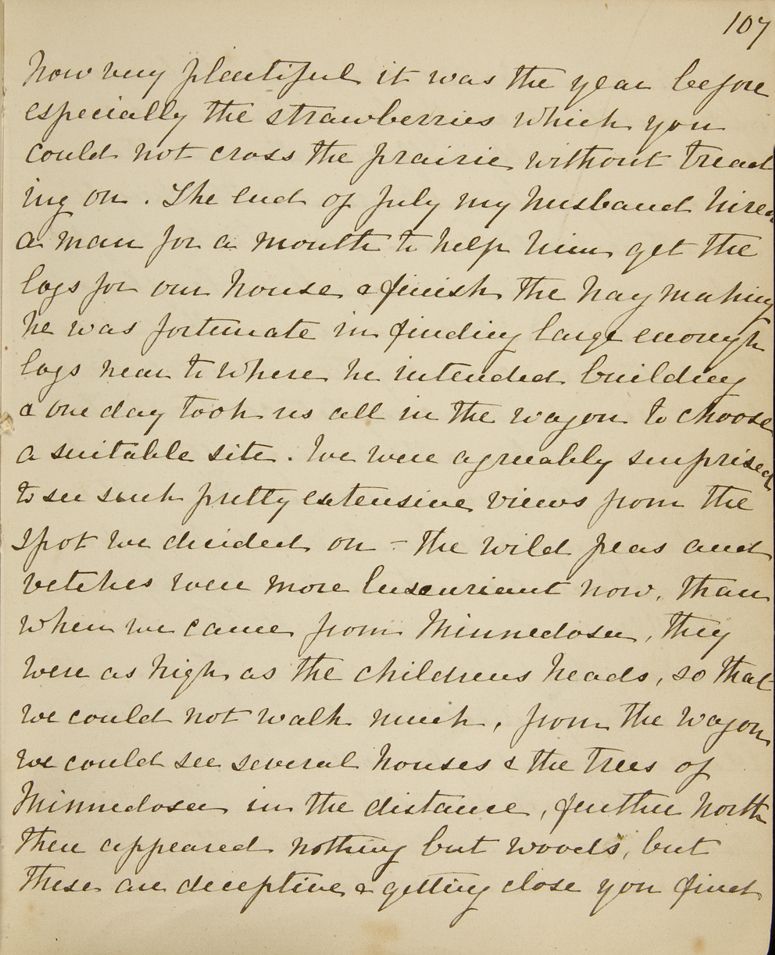 107
how very plentiful it was the year before
especially the strawberries which you
could not cross the prairie without tread
ing on. The end of July my husband hired
a man for a month to help him get the
logs for our house & finish the hay making
he was fortunate in finding large enough
logs near to where he intended building
& one day took us all in the wagon to choose
a suitable site. We were agreably surprised
to see such pretty extensive views from the
spot we decided on – the wild peas and
vetches were more luxuriant now, than
when we came from Minnedosa, they
were as high as the childrens heads, so that
we could not walk much, from the wagon
we could see several houses & the trees of
Minnedosa in the distance, further North
there appeared nothing but woods, but
these are deceptive & getting close you find